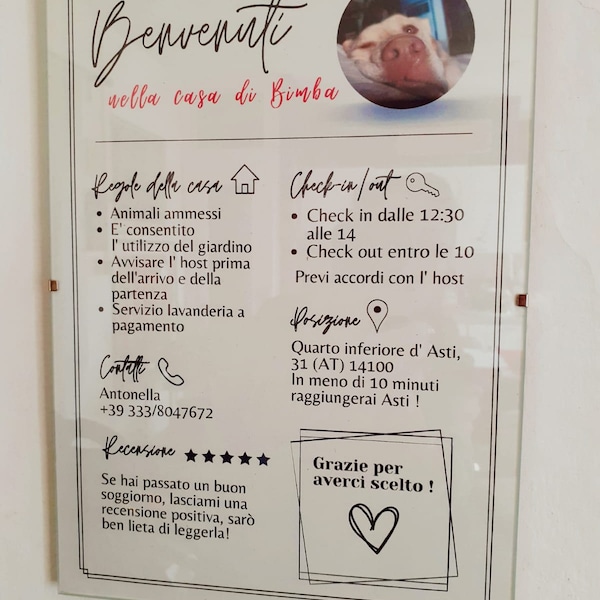 Benvenuti
nella casa di Bimba
Regole della casa
• Animali ammessi
• E' consentito
l' utilizzo del giardino
• Avvisare l' host prima
dell'arrivo e della
partenza
• Servizio lavanderia a
pagamento
Contatti
Antonella
+39 333/8047672
Recensione
Se hai passato un buon
soggiorno, lasciami una
recensione positiva, sarò
ben lieta di leggerla!
Check-in/out
• Check in dalle 12:30
alle 14
• Check out entro le 10
Previ accordi con l' host
Posizione
Quarto inferiore d' Asti,
31 (AT) 14100
In meno di 10 minuti
raggiungerai Asti !
Grazie per
averci scelto !